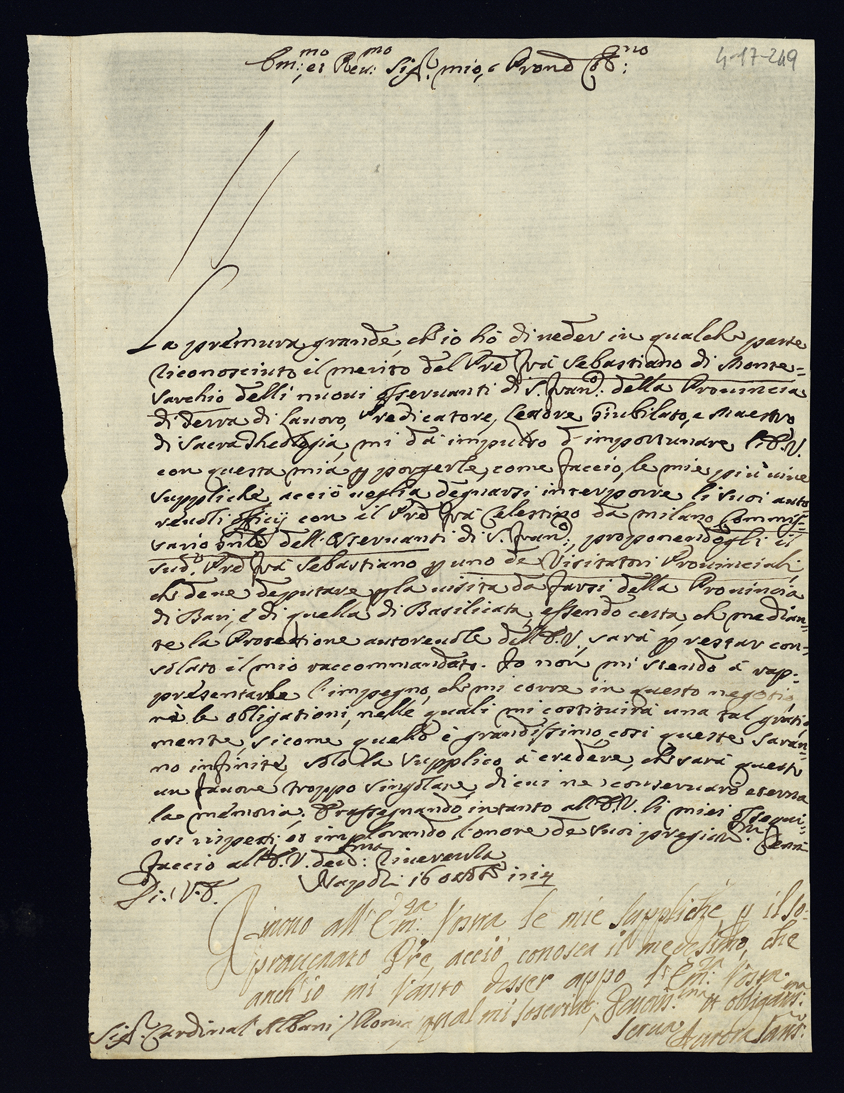 4-17-249
Em:mo et Rev:mo Sig.r mio, e Prone Col:mo
La premura grande, ch'io hò di veder in qualche parte
riconosciuto il merito del Pre Frà Sebastiano di Monte=
Sarchio delli nuovi osservanti di S. Fran.o della Provincia
di Terra di Lavoro, Predicatore, Lettore Giubilato, e Maestro
di Sacra Theologia, mi dà impulso d'importunare l'E.V.
con questa mia p porgerle, come faccio, le mie più vive
suppliche, acciò voglia degnarsi interporre li suoi auto
revoli officij con il Pre Frà Celestino da Milano Commis=
sario Gnle dell'Osservanti di S. Fran:o, proponendogli il
sud.o Pre Frà Sebastiano p uno de Visitatori Provinciali,
che deve deputare p la visita da farsi della Provincia
di Bari, e di quella di Basilicata, essendo certa, che median=
te la Protettione autorevole dell'E.V., sarà p restar con=
solato il mio raccommandato. Io non mi stendo à rap=
presentarle l'impegno, che mi corre in questo negotio,
nè le obligationi, nelle quali mi costituirà una tal gratia
mente, sicome quello è grandissimo, così queste saran=
no infinite, solo la supplico à credere, che sarà questo
un favore troppo singolare, di cui ne conservarò eterna
la memoria. Trassegnando intanto all'E.V. li miei ossequi=
osi rispetti, et implorando l'onore de suoi pregiat.mi
faccio all'E.V. riverenza
Di V.E. Napoli 16 ottobre 1714
Rinovo all'Em:za Vostra le mie suppliche p il so=
pracenato Pre, acciò conosca il medesimo, che
anch'io mi vanto d'esser appo l'Em:za Vostra
qual mi soscrivo Devotis:ma et obligatis:ma
Serva Aurora Sans:
Sig.r Cardinal Albani / Roma